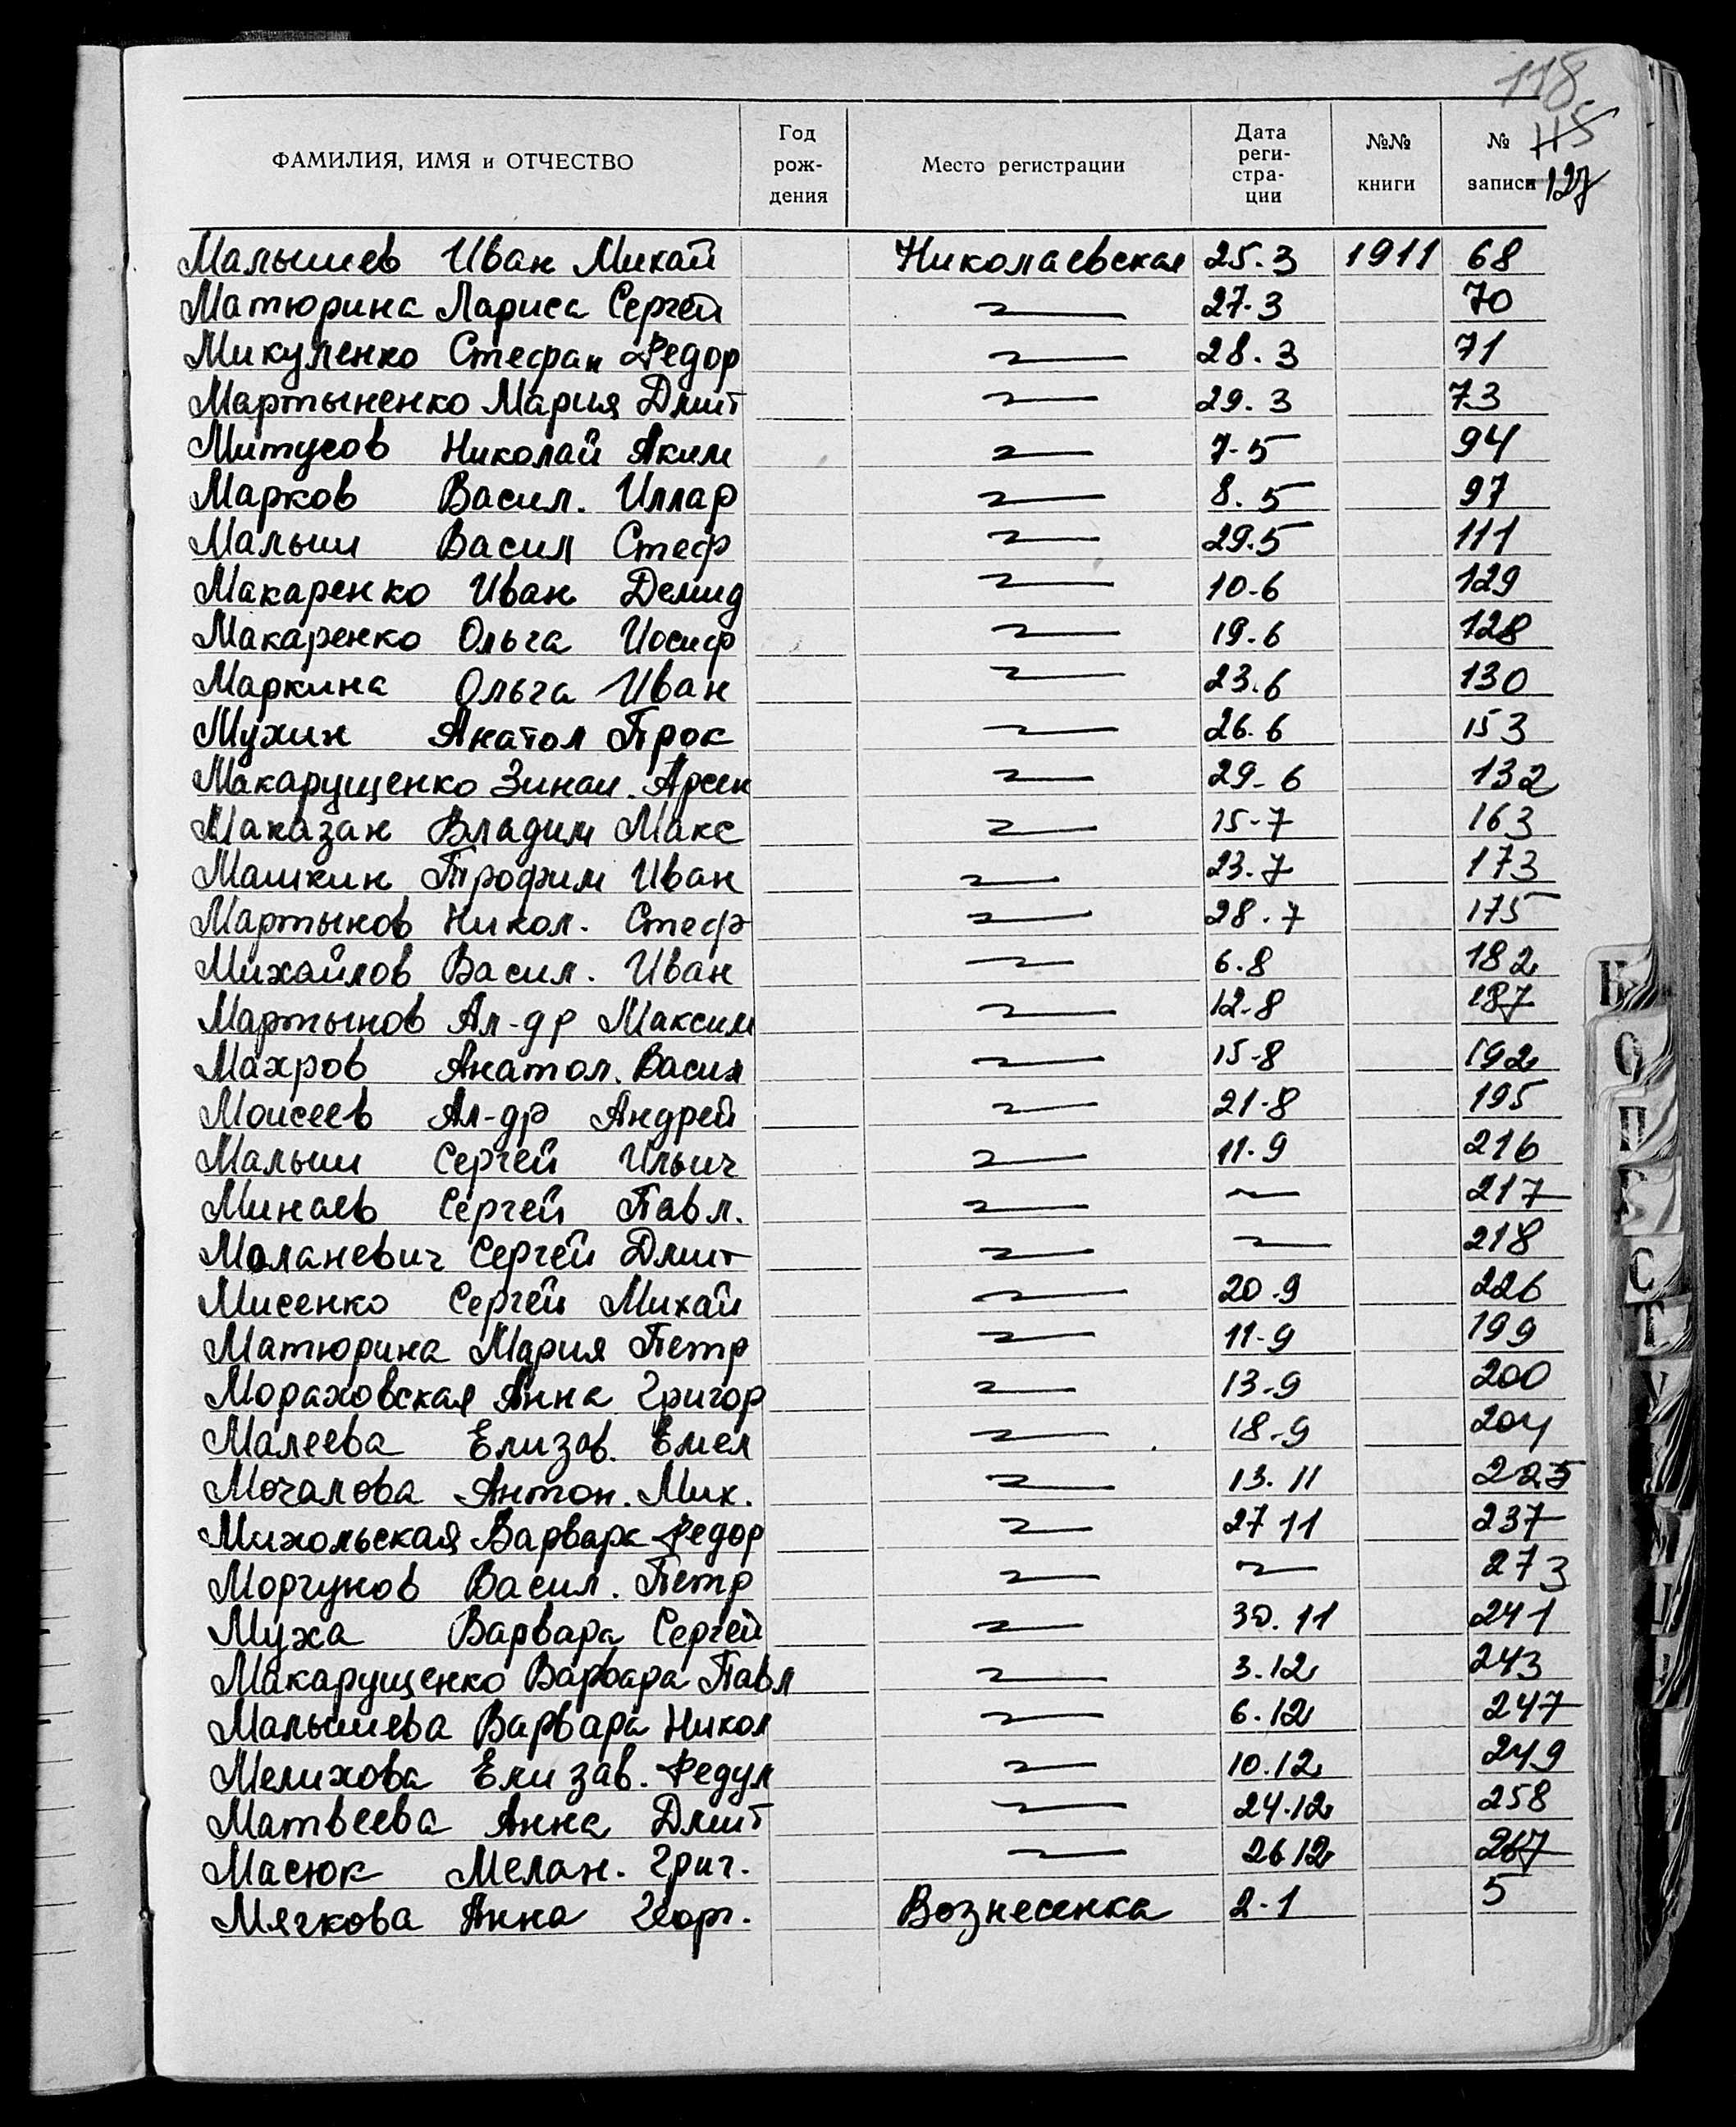 118
115
127
ФАМИЛИЯ, ИМЯ и ОТЧЕСТВО Год рождения Место регистрации Дата регистрации №№ книги № записи
Малышев Иван Михай Николаевская 25.3 1911 68
Матюрина Лариса Сергей 27.3 70
Микуленко Стефан Федор 28.3 71
Мартыненко Мария Дмит 29.3 73
Митусов Николай Аким 7-5 94
Марков Васил. Иллар 8.5 97
Малыш Васил Стеф 29.5 111
Макаренко Иван Демид 10-6 129
Макаренко Ольга Иосиф 19.6 128
Маркина Ольга Иван 23.6 130
Мухин Анатол Прок 26.6 153
Макарущенко Зинаи. Арсен 29-6 132
Маказан Владим Макс 15-7 163
Машкин Трофим Иван 23.7 173
Мартынов Никол. Стеф 28.7 175
Михайлов Васил. Иван 6.8 182
Мартынов Ал-др Максим 12-8 187
Махров Анатол. Васил 15-8 192
Моисеев Ал-др Андрей 21-8 195
Малыш Сергей Ильич 11-9 216
Минаев Сергей Павл. 217
Моланевич Сергей Дмит 218
Мисенко Сергей Михай 20.9 226
Матюрина Мария Петр 11-9 199
Мораховская Анна Григор 13-9 200
Малеева Елизав. Емел 18-9 204
Мочалова Антон. Мих. 13.11 225
Михольская Варвара Федор 27 11 237
Моргунов Васил. Петр 273
Муха Варвара Сергей 30.11 241
Макарущенко Варвара Павл 3.12 243
Малышева Варвара Никол 6.12 247
Мелихова Елизав. Федул 10.12 249
Матвеева Анна Дмит 24.12 258
Масюк Мелан. Григ. 26 12 267
Мягкова Анна Георг. Вознесенка 2-1 5
Н
О
П
Р
С
Т
У